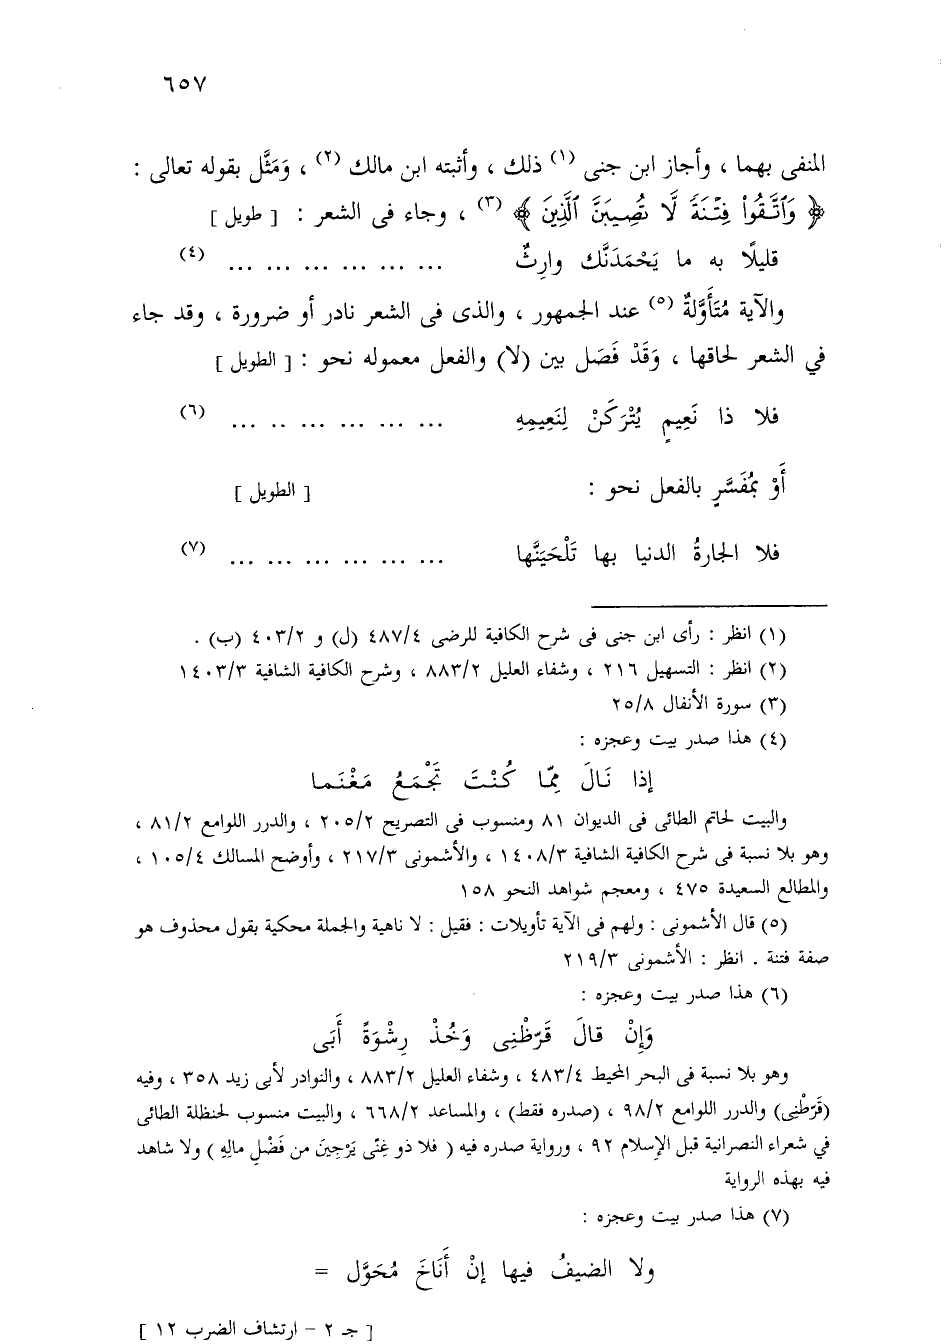 ٦٥٧
المنفى بهما ، وأجاز ابن جنى (١) ذلك ، وأثبته ابن مالك (٢) ، وَمَثَّل بقوله تعالى :
﴿ وَٱتَّقُوا۟ فِتْنَةً لَّا تُصِيبَنَّ ٱلَّذِينَ ﴾ (٣) ، وجاء فى الشعر : [ طويل ]
قليلًا به ما يَحْمَدَنَّك وارِثٌ ... ... ... ... ... ... (٤)
والآية مُتَأَوَّلةٌ (٥) عند الجمهور ، والذى فى الشعر نادر أو ضرورة ، وقد جاء
في الشعر لحاقها ، وَقَدْ فَصَل بين (لا) والفعل معموله نحو : [ الطويل ]
فلا ذا نَعِيمٍ يُتْرَكَنْ لِنَعِيمِهِ ... ... ... ... .. ... (٦)
أَوْ بمُفَسَّرٍ بالفعل نحو : [ الطويل ]
فلا الجارةُ الدنيا بها تَلْحَيَنَّها ... ... ... ... ... ... (٧)
(١) انظر : رأى ابن جنى فى شرح الكافية للرضى ٤٨٧/٤ (ل) و ٤٠٣/٢ (ب) .
(٢) انظر : التسهيل ٢١٦ ، وشفاء العليل ٨٨٣/٢ ، وشرح الكافية الشافية ١٤٠٣/٣
(٣) سورة الأنفال ٢٥/٨
(٤) هذا صدر بيت وعجزه :
إذا نَالَ مِمّا كُنْتَ تَجْمَعُ مَغْنَما
والبيت لحاتم الطائى فى الديوان ٨١ ومنسوب فى التصريح ٢٠٥/٢ ، والدرر اللوامع ٨١/٢ ،
وهو بلا نسبة فى شرح الكافية الشافية ١٤٠٨/٣ ، والأشمونى ٢١٧/٣ ، وأوضح المسالك ١٠٥/٤ ،
والمطالع السعيدة ٤٧٥ ، ومعجم شواهد النحو ١٥٨
(٥) قال الأشمونى : ولهم فى الآية تأويلات : فقيل : لا ناهية والجملة محكية بقول محذوف هو
صفة فتنة . انظر : الأشمونى ٢١٩/٣
(٦) هذا صدر بيت وعجزه :
وَإِنْ قالَ قَرّظْنِى وَخُذْ رِشْوَةً أَبَى
وهو بلا نسبة فى البحر المحيط ٤٨٣/٤ ، وشفاء العليل ٨٨٣/٢ ، والنوادر لأبى زيد ٣٥٨ ، وفيه
(قَرّطْنِى) والدرر اللوامع ٩٨/٢ ، (صدره فقط) ، والمساعد ٦٦٨/٢ ، والبيت منسوب لحنظلة الطائى
في شعراء النصرانية قبل الإسلام ٩٢ ، ورواية صدره فيه ( فلا ذو غِنّى يَرْجِينَ من فَضْلِ مالِهِ ) ولا شاهد
فيه بهذه الرواية
(٧) هذا صدر بيت وعجزه :
ولا الضيفُ فيها إنْ أَنَاخَ مُحَوَّل =
[ جـ ٢ - ارتشاف الضرب ١٢ ]